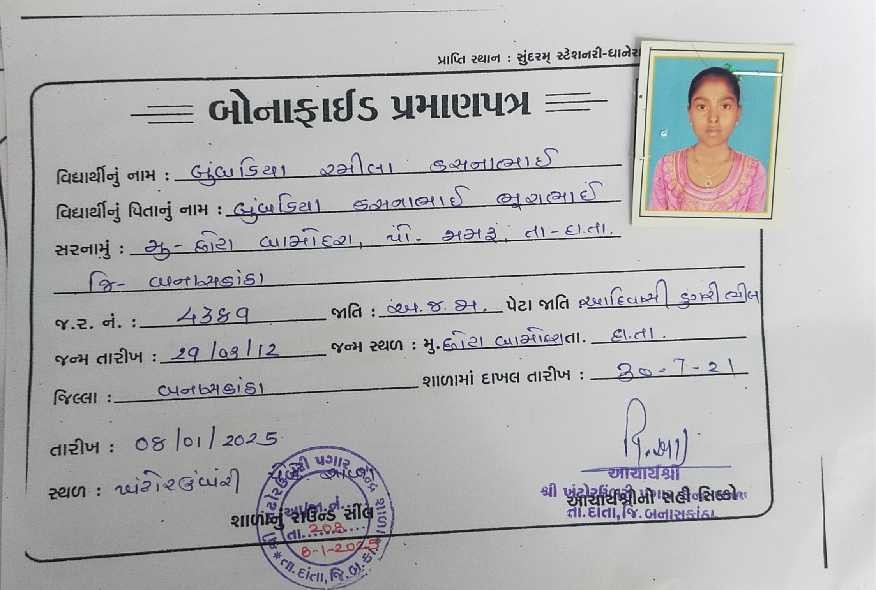 પ્રાપ્તિ સ્થાન : સુંદરમ્ સ્ટેશનરી-ધાનેરા
બોનાફાઈડ પ્રમાણપત્ર
વિદ્યાર્થીનું નામ : બુંબડિયા રમીલા કસનાભાઈ
વિદ્યાર્થીનું પિતાનું નામ : બુંબડિયા કસનાભાઈ ભૂરાભાઈ
સરનામું : મુ- છોટા બામોદરા, પો. મમરૂં, તા-દાંતા.
જિ- બનાસકાંઠા
જ.ર. નં. : ૪૩૬૧ જાતિ : અ.જ.જા. પેટા જાતિ આદિવાસી ડુંગરી ભીલ
જન્મ તારીખ : 29/03/12 જન્મ સ્થળ : મુ. છોટા બામોદરા તા. દાંતા.
જિલ્લા : બનાસકાંઠા શાળામાં દાખલ તારીખ : 30-7-21
તારીખ : 08/01/2025
સ્થળ : ખંટોરઉંબરી
આચાર્યશ્રી
શ્રી ખંટોરઉંબરી પગાર
શાળાનું રાઉન્ડ સીલ આચાર્યશ્રીનો સહી સિક્કો
તા.દાંતા, જિ. બનાસકાંઠા
પગાર કેન્દ્ર શાળા
તા. 208
8-1-2025
તા. દાંતા, જિ. બ.કાં.